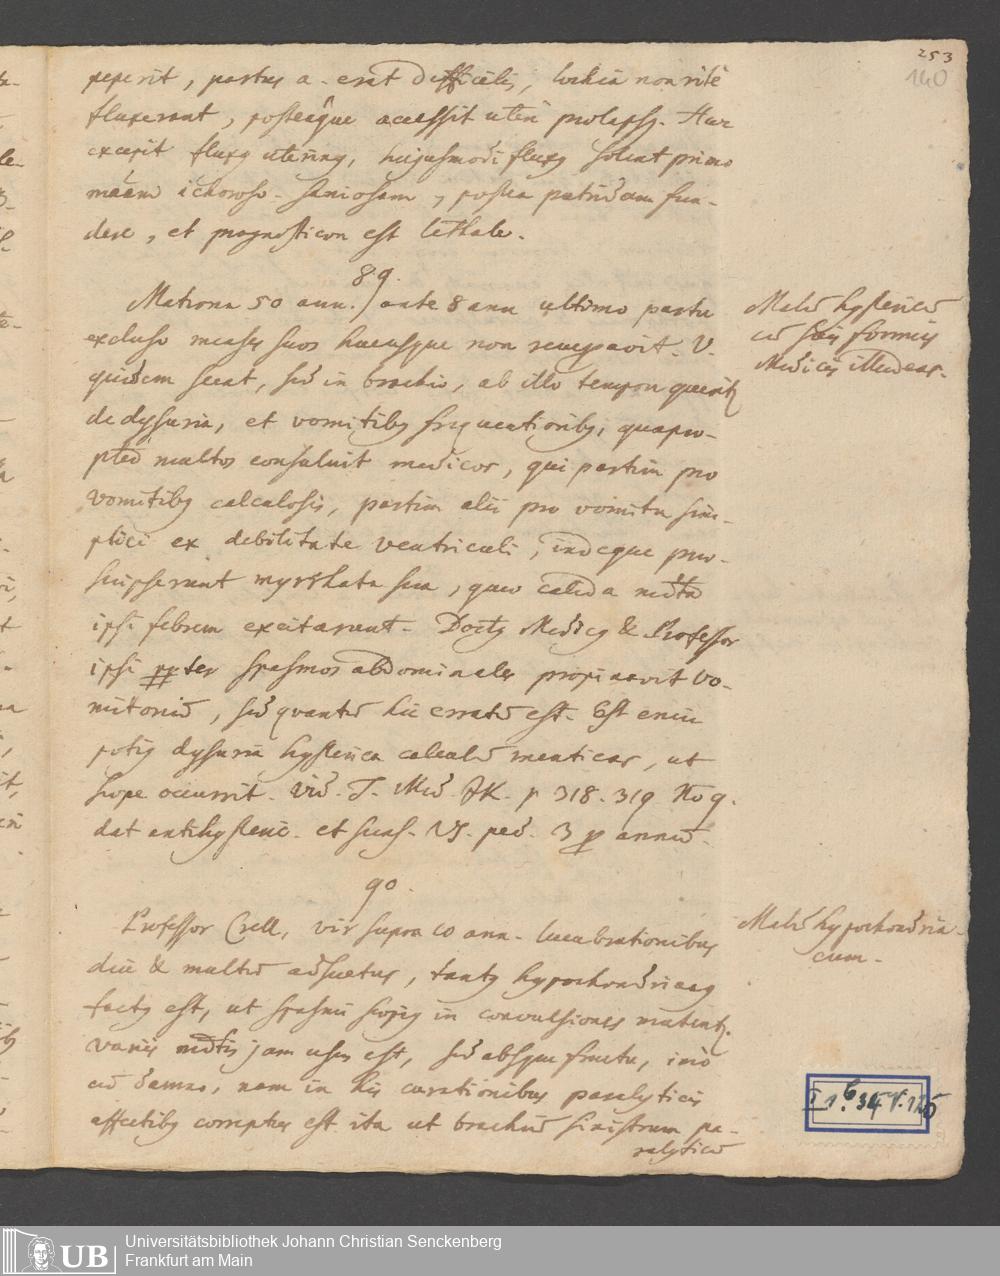 253
140
peperit, partus a. erat difficilis, lochia non rite
fluxerant, posteaque accessit uteri prolapsq. Hunc
excepit fluxq uterinq, hujusmodi fluxq solent primo
ichoroso-saniosam, postea putridam fun-
dere, et prognosticon est lethale.
89.
Matrona 50 ann. ante 8 ann ultimo partu
excluso menses suos hucusque non revocavit. V.
quidem secat, sed in brachio, ab illo tempore queritr
de dysuria, et vomitibq frequentioribq, quaprop-
pter multos consuluit medicos, qui partim pro
vomitibq calculosis, partim alii pro vomitu sim-
plici ex debilitate ventriculi, indeque pro-
scripserunt myrrhata sua, quae calida
ipsi febrem excitarunt. Doctq Medicq & Professor
ipsi ppter spasmos abdominales propinavit vo-
mitoriu, sed quantu hic erratu est. Est enim
potiq dysuria hysterica calculu mentiens, ut
saepe occurrit. Vid. J. Med. JK. p 318. 319 No 9.
dat antihysteric. et suas. VS. ped. 3 p annu.
Malu hystericu
cu suis formis
Medicis illudens.
90.
Professor Crell, vir supra 40 ann. lucubrationibus
diu & multu adsuetus, tantq hypochondriacq
factq est, ut spasmi saepiq in convulsiones mutentr.
variis jam usus est, sed absque fructu, imo
cu damno, nam in his curationibus paralyticis
affectibq correptus est ita ut brachiu sinistrum pa-
ralyticu
Malu hypochondria-
cum.
UB
Universitätsbibliothek Johann Christian Senckenberg
Frankfurt am Main